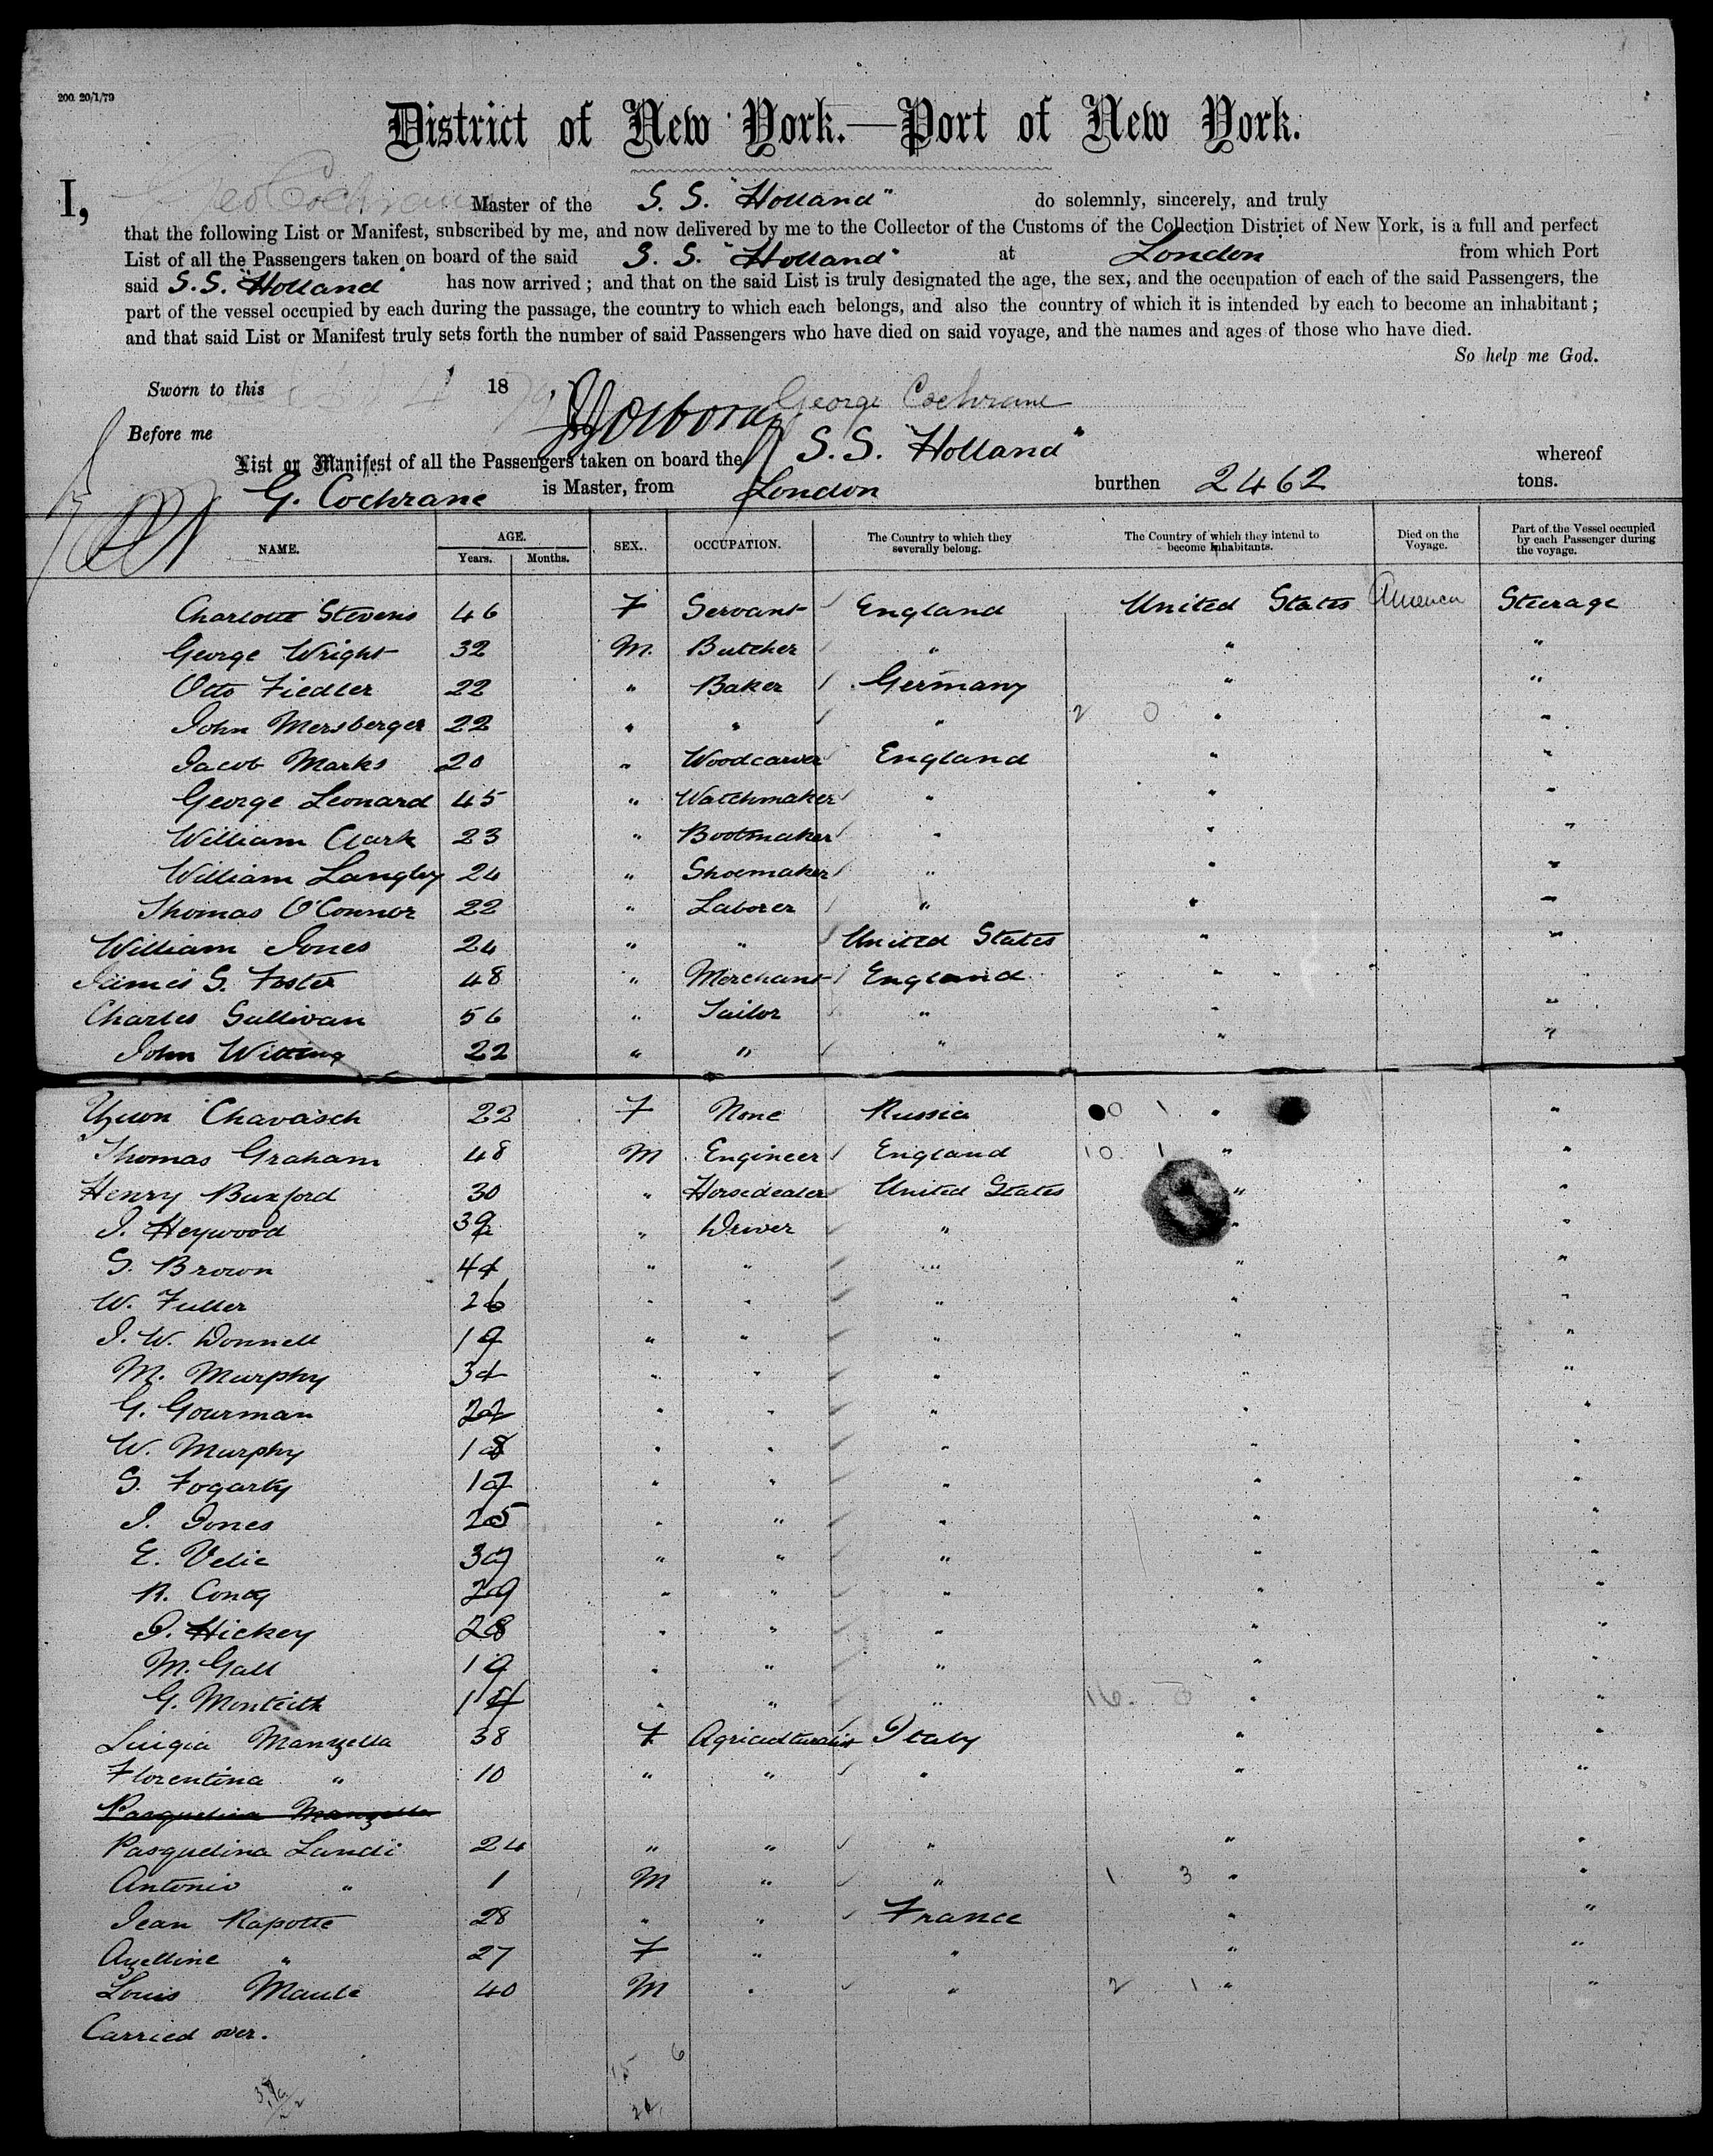 200. 20/1/79
District of New York.—Port of New York.
I, Geo Cochrane Master of the S. S. "Holland" do solemnly, sincerely, and truly
that the following List or Manifest, subscribed by me, and now delivered by me to the Collector of the Customs of the Collection District of New York, is a full and perfect
List of all the Passengers taken on board of the said S. S. "Holland" at London from which Port
said S. S. "Holland" has now arrived; and that on the said List is truly designated the age, the sex, and the occupation of each of the said Passengers, the
part of the vessel occupied by each during the passage, the country to which each belongs, and also the country of which it is intended by each to become an inhabitant;
and that said List or Manifest truly sets forth the number of said Passengers who have died on said voyage, and the names and ages of those who have died.
So help me God.
Sworn to this 4 1879 George Cochrane
Before me
List or Manifest of all the Passengers taken on board the S. S. "Holland" whereof
G. Cochrane is Master, from London burthen 2462 tons.
NAME. AGE. Years. Months. SEX. OCCUPATION. The Country to which they severally belong. The Country of which they intend to become Inhabitants. Died on the Voyage. Part of the Vessel occupied by each Passenger during the voyage.
Charlotte Stevens 46 F Servant England United States America Steerage
George Wright 32 M. Butcher " " "
Otto Fiedler 22 " Baker Germany " "
John Mersberger 22 " " " 2 0 " "
Jacob Marks 20 " Woodcarver England " "
George Leonard 45 " Watchmaker " " "
William Clark 23 " Bootmaker " " "
William Langley 24 " Shoemaker " " "
Thomas O'Connor 22 " Laborer " " "
William Jones 24 " " United States " "
James S. Foster 48 " Merchant England " "
Charles Sullivan 56 " Tailor " " "
John Witting 22 " " " " "
Chavasch 22 F None Russia 0 1 " "
Thomas Graham 48 M Engineer England 10 1 " "
Henry Buxford 30 " Horsedealer United States " "
J. Heywood 39 " Driver " " "
S. Brown 44 " " " " "
W. Fuller 26 " " " " "
J. W. Donnell 19 " " " " "
M. Murphy 34 " " " " "
G. Gourman 22 " " " " "
W. Murphy 18 " " " " "
S. Fogarty 17 " " " " "
J. Jones 25 " " " " "
E. Velie 37 " " " " "
R. Cony 29 " " " " "
J. Hickey 28 " " " " "
M. Gall 19 " " " " "
G. Monteith 14 " " " 16. 0 " "
Luigia Manzella 38 F Agriculturalist Italy " "
Florentina " 10 " " " " "
Pasquelina Manzella
Pasquelina Landi 24 " " " " "
Antonio " 1 M " " 1 3 " "
Jean Rapotte 28 " " France " "
Azelline " 27 F " " " "
Louis Maule 40 M " " 2 1 " "
Carried over.
15 6